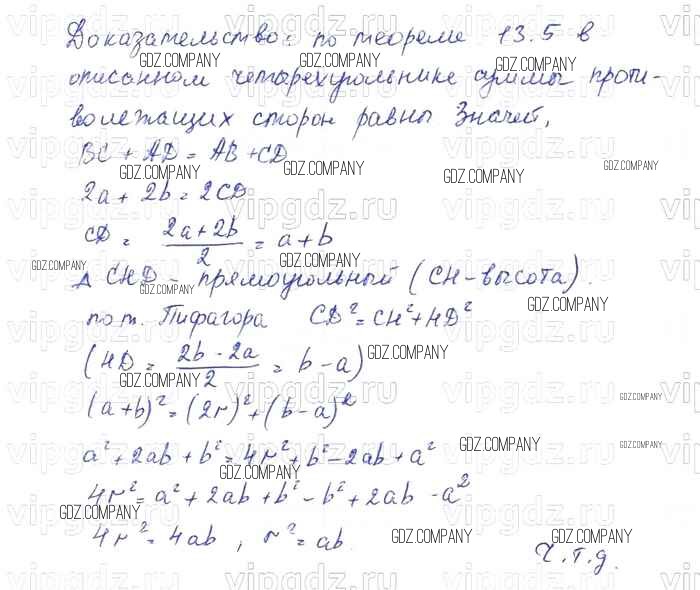 Доказательство: по теореме 13.5 в
описанном четырехугольнике суммы проти-
волежащих сторон равны Значит,
BC + AD = AB + CD
2a + 2b = 2CD
CD = (2a + 2b)/2 = a + b
Δ CHD - прямоугольный (CH - высота).
по т. Пифагора CD² = CH² + HD²
(HD = (2b - 2a)/2 = b - a)
(a + b)² = (2r)² + (b - a)²
a² + 2ab + b² = 4r² + b² - 2ab + a²
4r² = a² + 2ab + b² - b² + 2ab - a²
4r² = 4ab, r² = ab.
Ч.т.д.
GDZ.COMPANY
vipgdz.ru